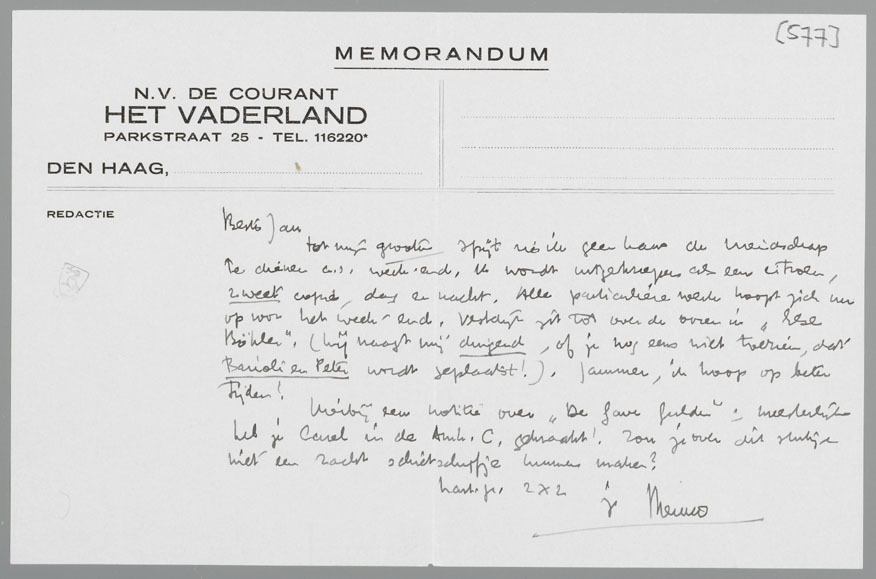 [577]
MEMORANDUM
N.V. DE COURANT
HET VADERLAND
PARKSTRAAT 25 - TEL. 116220*
DEN HAAG,
REDACTIE
Beste Jan
tot mijn grooten spijt zie ik geen kans de vriendschap
te dienen a.s. week-end. Ik wordt uitgeknepen als een citroen,
zweet copie, dag en nacht. Alle particuliere werk hoopt zich nu
op voor het week-end. Verstijt zit tot over de ooren in „Else
Böhler". (Hij vraagt mij dringend, of je nog eens wilt toezien, dat
Barioli en Peter wordt geplaatst!). Jammer, ik hoop op beter
tijden!
Hierbij een notitie over „De Gave Gulden"; meesterlijk
heb je Carel in de Amh. C. gekraakt! Zou je over dit stukje
niet een zacht schietschijfje kunnen maken?
hart. gr. 2x2
je Menno